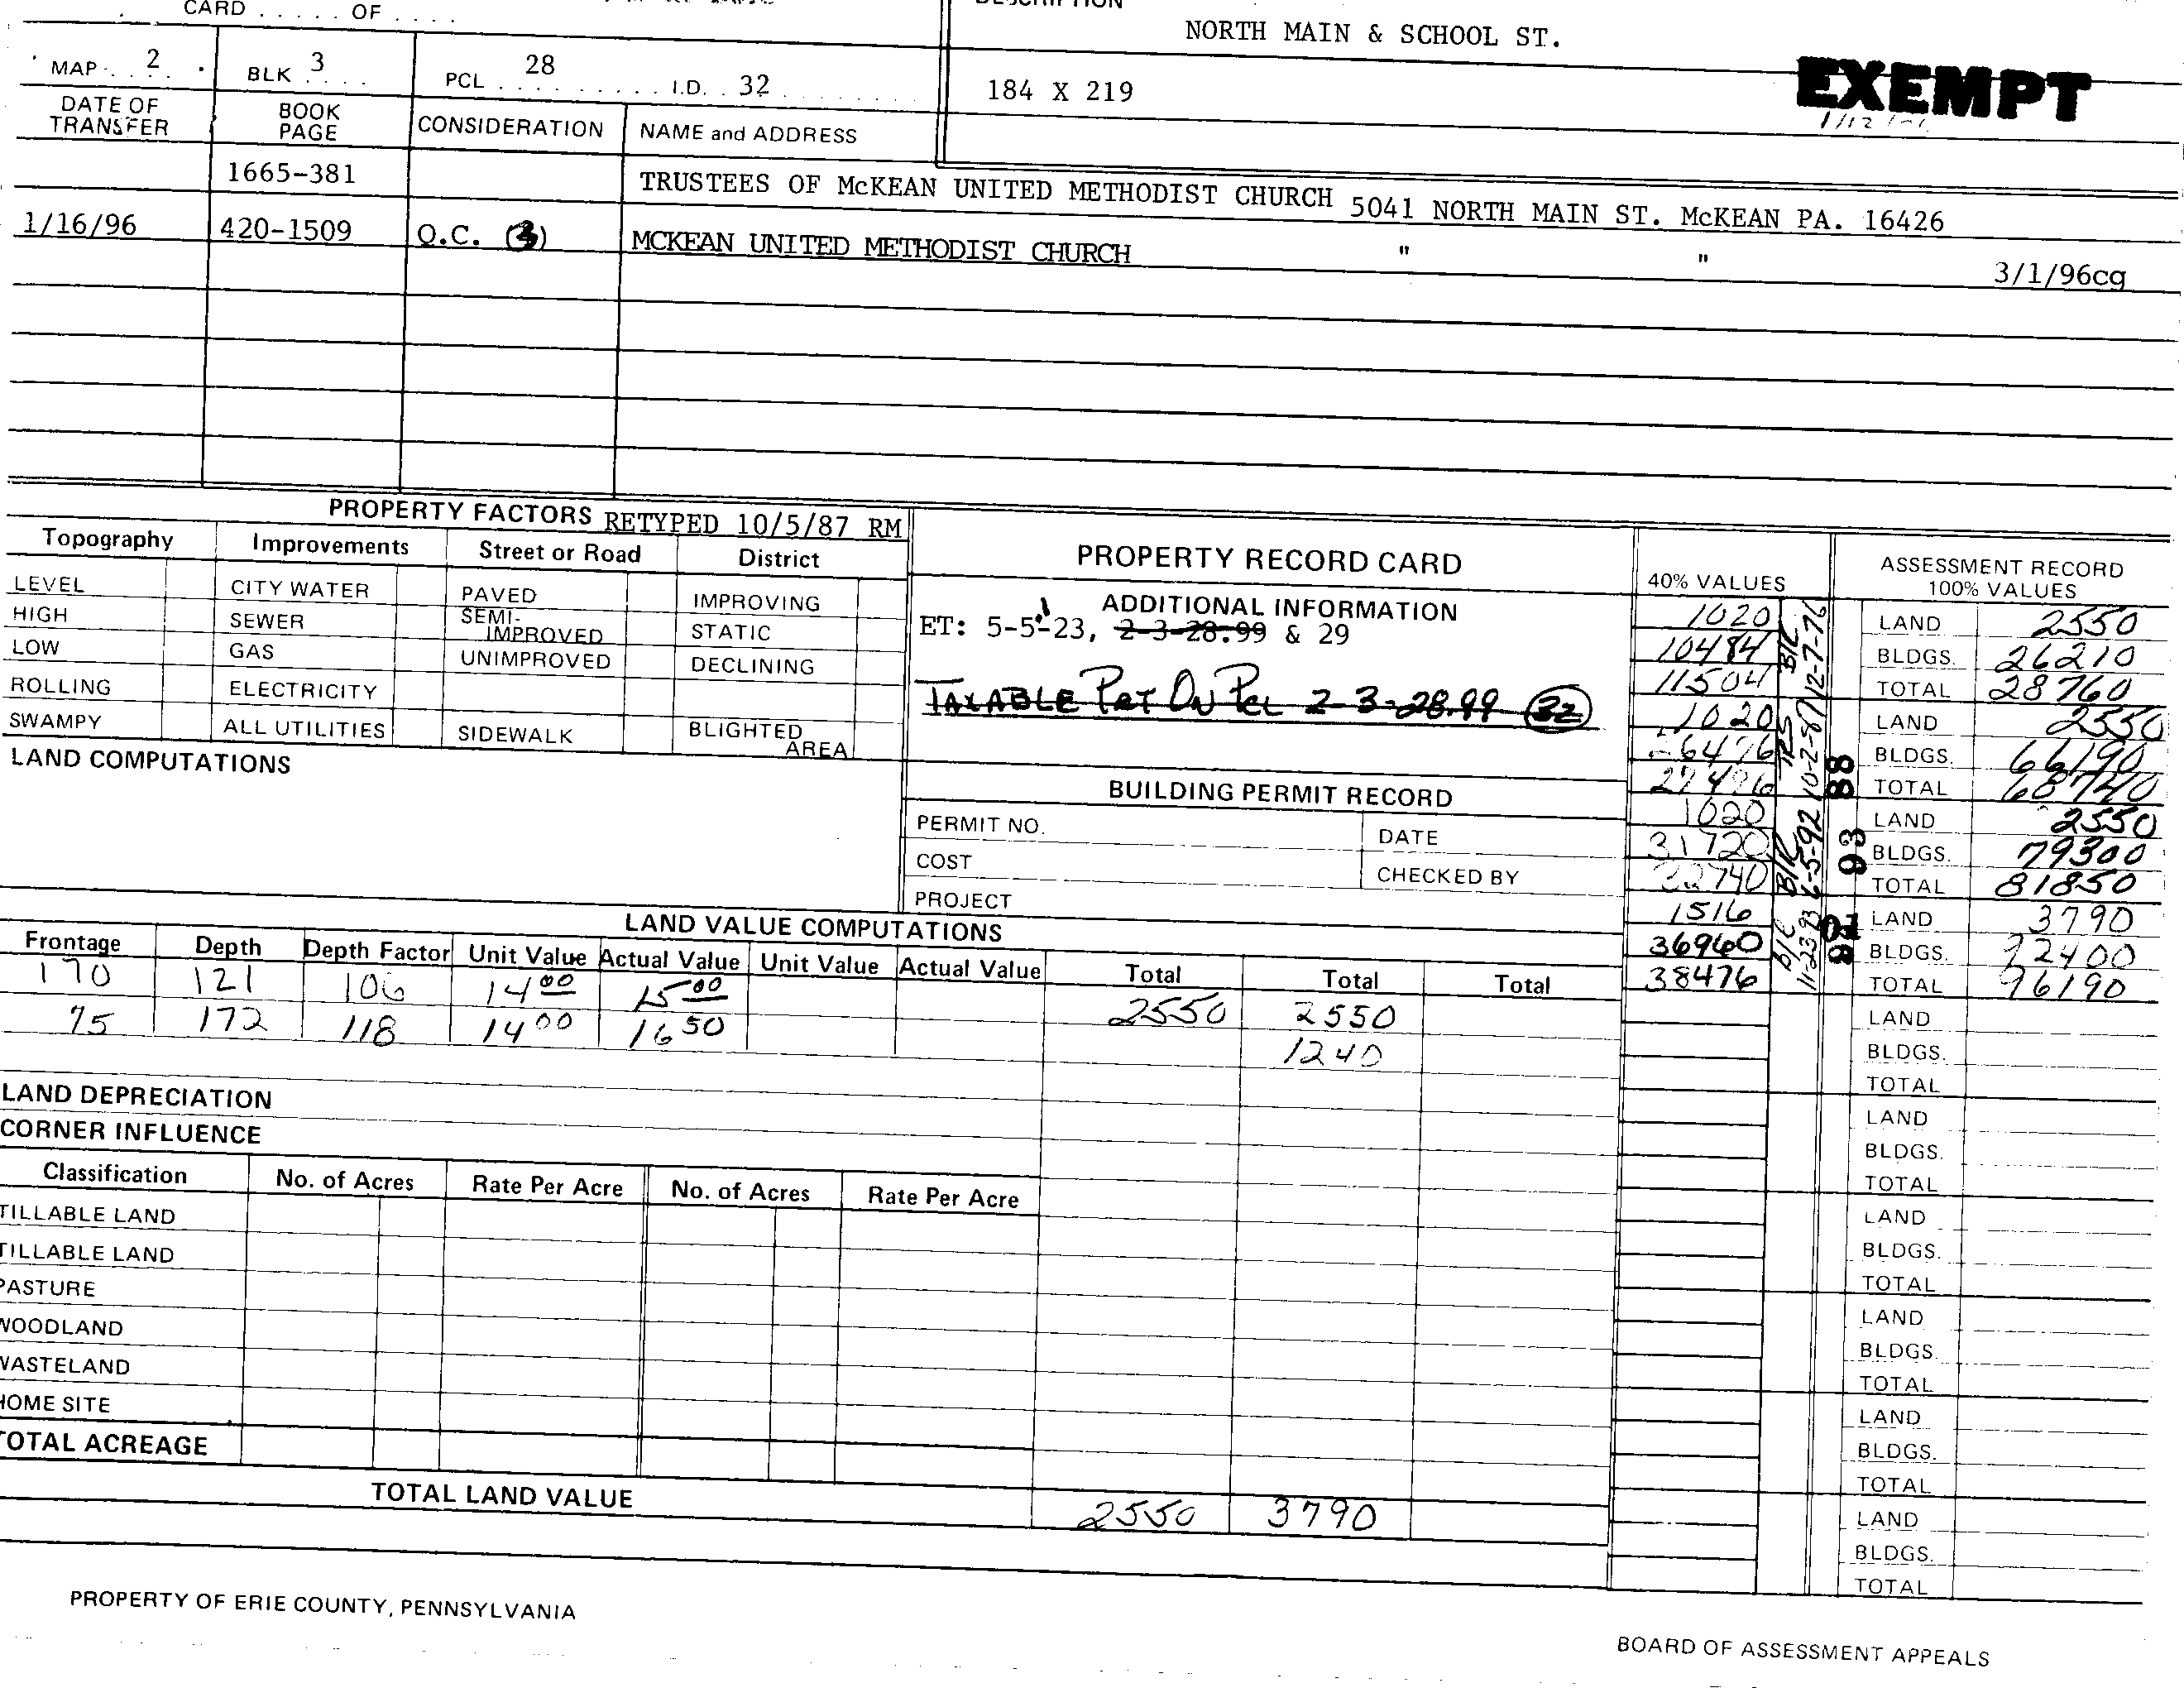 CARD ..... OF ....
DESCRIPTION
NORTH MAIN & SCHOOL ST.
MAP . 2 . BLK 3 PCL 28 I.D. 32
184 X 219
EXEMPT
DATE OF TRANSFER BOOK PAGE CONSIDERATION NAME and ADDRESS
1665-381 TRUSTEES OF McKEAN UNITED METHODIST CHURCH 5041 NORTH MAIN ST. McKEAN PA. 16426
1/16/96 420-1509 O.C. (3) MCKEAN UNITED METHODIST CHURCH " " 3/1/96cg
PROPERTY FACTORS RETYPED 10/5/87 RM
Topography Improvements Street or Road District
LEVEL CITY WATER PAVED IMPROVING
HIGH SEWER SEMI-IMPROVED STATIC
LOW GAS UNIMPROVED DECLINING
ROLLING ELECTRICITY
SWAMPY ALL UTILITIES SIDEWALK BLIGHTED AREA
LAND COMPUTATIONS
PROPERTY RECORD CARD
ADDITIONAL INFORMATION
ET: 5-5-23, 2-3-28.99 & 29
TAXABLE PRT ON PCL 2-3-28.99 (32)
BUILDING PERMIT RECORD
PERMIT NO. DATE
COST CHECKED BY
PROJECT
40% VALUES ASSESSMENT RECORD 100% VALUES
1020 LAND 2550
10484 BLDGS. 26210
11504 BIC 12-7-76 TOTAL 28760
1020 LAND 2550
26476 BLDGS. 66190
27496 10-2-87 88 TOTAL 68740
1020 LAND 2550
31720 BLDGS. 79300
32740 6-5-92 93 TOTAL 81850
1516 LAND 3790
36960 BLDGS. 92400
38476 11-23-93 TOTAL 96190
LAND
BLDGS.
TOTAL
LAND
BLDGS.
TOTAL
LAND
BLDGS.
TOTAL
LAND
BLDGS.
TOTAL
LAND
BLDGS.
TOTAL
LAND
BLDGS.
TOTAL
LAND VALUE COMPUTATIONS
Frontage Depth Depth Factor Unit Value Actual Value Unit Value Actual Value Total Total Total
170 121 106 14 00 15 00 2550 2550
75 172 118 14 00 16 50 1240
LAND DEPRECIATION
CORNER INFLUENCE
Classification No. of Acres Rate Per Acre No. of Acres Rate Per Acre
TILLABLE LAND
TILLABLE LAND
PASTURE
WOODLAND
WASTELAND
HOME SITE
TOTAL ACREAGE
TOTAL LAND VALUE 2550 3790
PROPERTY OF ERIE COUNTY, PENNSYLVANIA
BOARD OF ASSESSMENT APPEALS